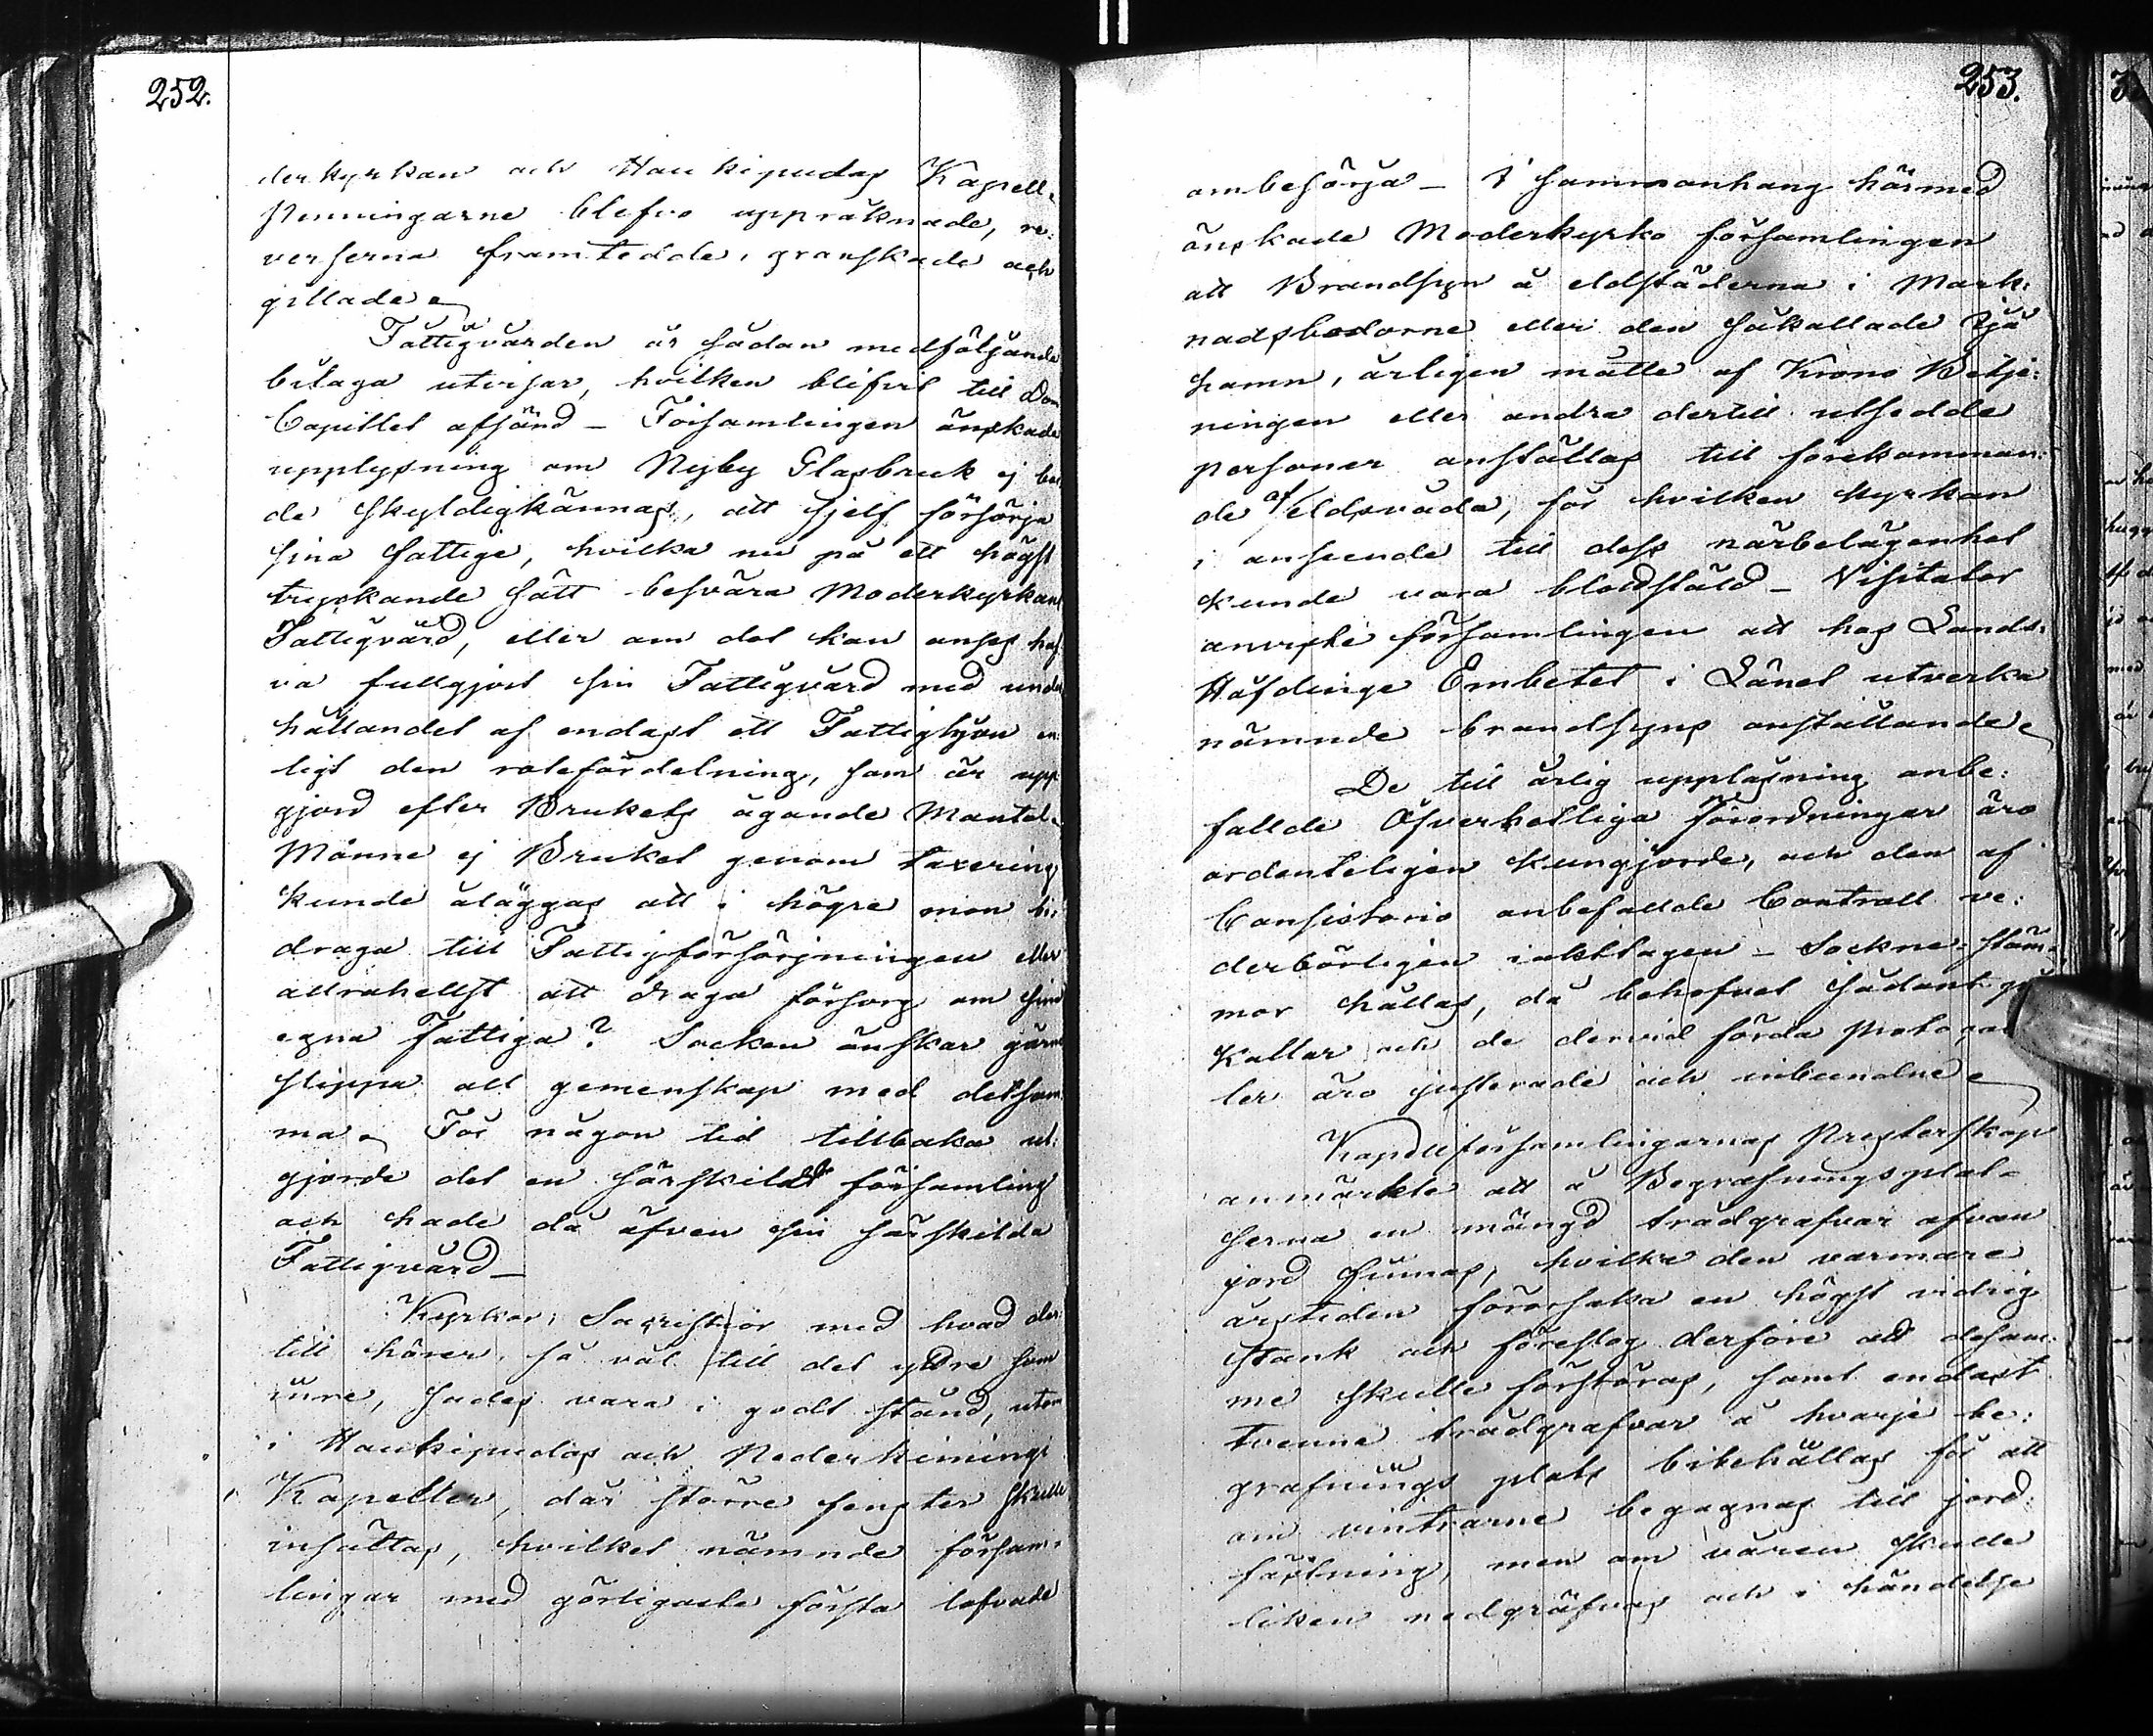 252.
derkyrkan och Haukipudas Kapell.
Penningarne blefvo uppräknade, re:
verserna framtedde, granskade och
gillade.
Fattigvården är sådan medföljande
bilaga utvisar, hvilken blifvit till Dom
Capitlet afsänd – Församlingen önskade
upplysning om Nyby Glasbruk ej bor
de skyldigkännas, att sjelf försörja
sina fattige, hvilka nu på ett högst
tryckande sätt besvära Moderkyrkans
Fattigvård, eller om det kan anses haf
va fullgjort sin Fattigvård med under
hållandet af endast ett Fattighjon en:
ligt den rotefördelning, som är upp
gjord efter Brukets ägande Mantal.
Månne ej Bruket genom taxering
kunde åläggas att i högre mon bi:
draga till Fattigförsörjningen eller
allrahelst att draga försorg om sina
egna Fattiga? Socken önskar gärna
slippa all gemenskap med detsam
ma. För någon tid tillbaka ut:
gjorde det en särskildt församling
och hade då äfven sin särskilda
Fattigvård –
Kyrkor, Sacristior med hvad der
till hörer, så väl till det yttre som
inre, sades vara i godt stånd, utom
i Haukipudas och Nederkimings
Kapeller, där större fenster skulle
insättas, hvilket nämnde försam:
lingar med görligaste första lofvade
253.
ombesörja – I sammanhang härmed
önskade Moderkyrko församlingen
att Brandsyn å eldstäderna i Mark:
nadsbodarne eller den såkallade Sjö
hamn, årligen måtte af Krono Betje:
ningen eller andra dertill utsedde
personer anställas till förekomman:
de af eldsvåda, för hvilken kyrkan
i anseende till dess närbelägenhet
kunde vara blodstäld – Visitator
anviste församlingen att hos Lands:
Höfdinge Embetet i Länet utverka
nämnde brandsyns anställande.
De till årlig uppläsning anbe:
fallde Öfverhetliga Förordningar äro
ordenteligen kungjorde, och den af
Consistorio anbefallde Controll ve:
derbörligen iakttagen – Sockne stäm:
mor hållas, då behofvet sådant på
kallar och de dervid förda Protocol
ler äro justerade och inbundne.
Kapellförsamlingarnas Presterskap
anmärkte att å Begrafningsplat=
serna en mängd trädgrafvar ofvan
jord finnas, hvilka den varmare
årstiden förorsaka en högst vidrig
stank och föreslog derföre att desam:
me skulle förstöras, samt endast
tvenne trädgrafvar å hvarje be:
grafnings plats bibehållas för att
om vintrarne begagnas till jord:
fästning, men om våren skulle
liken nedgräfvas och i händelse